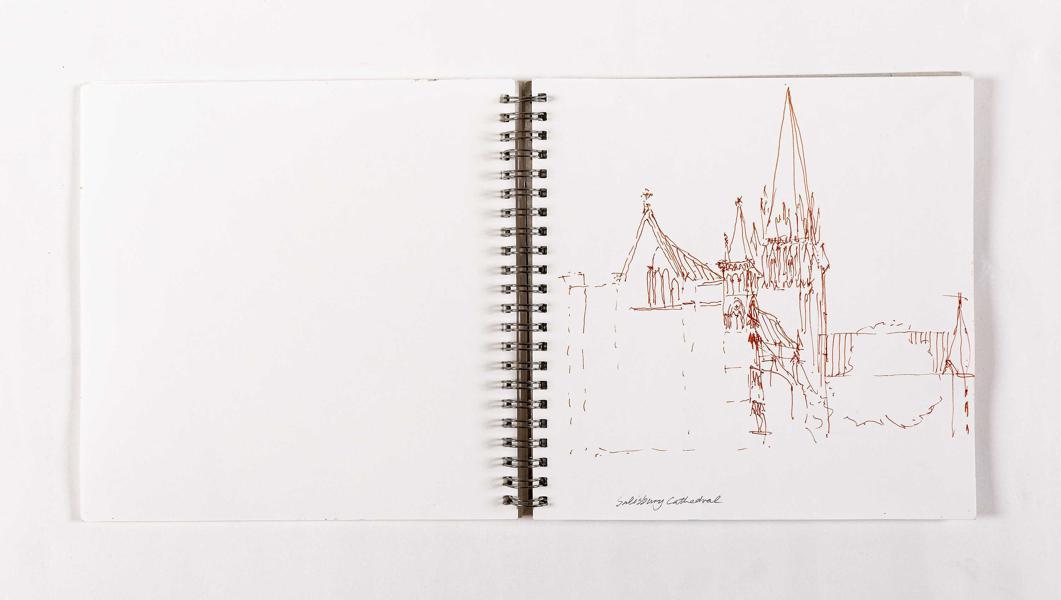 Salisbury Cathedral